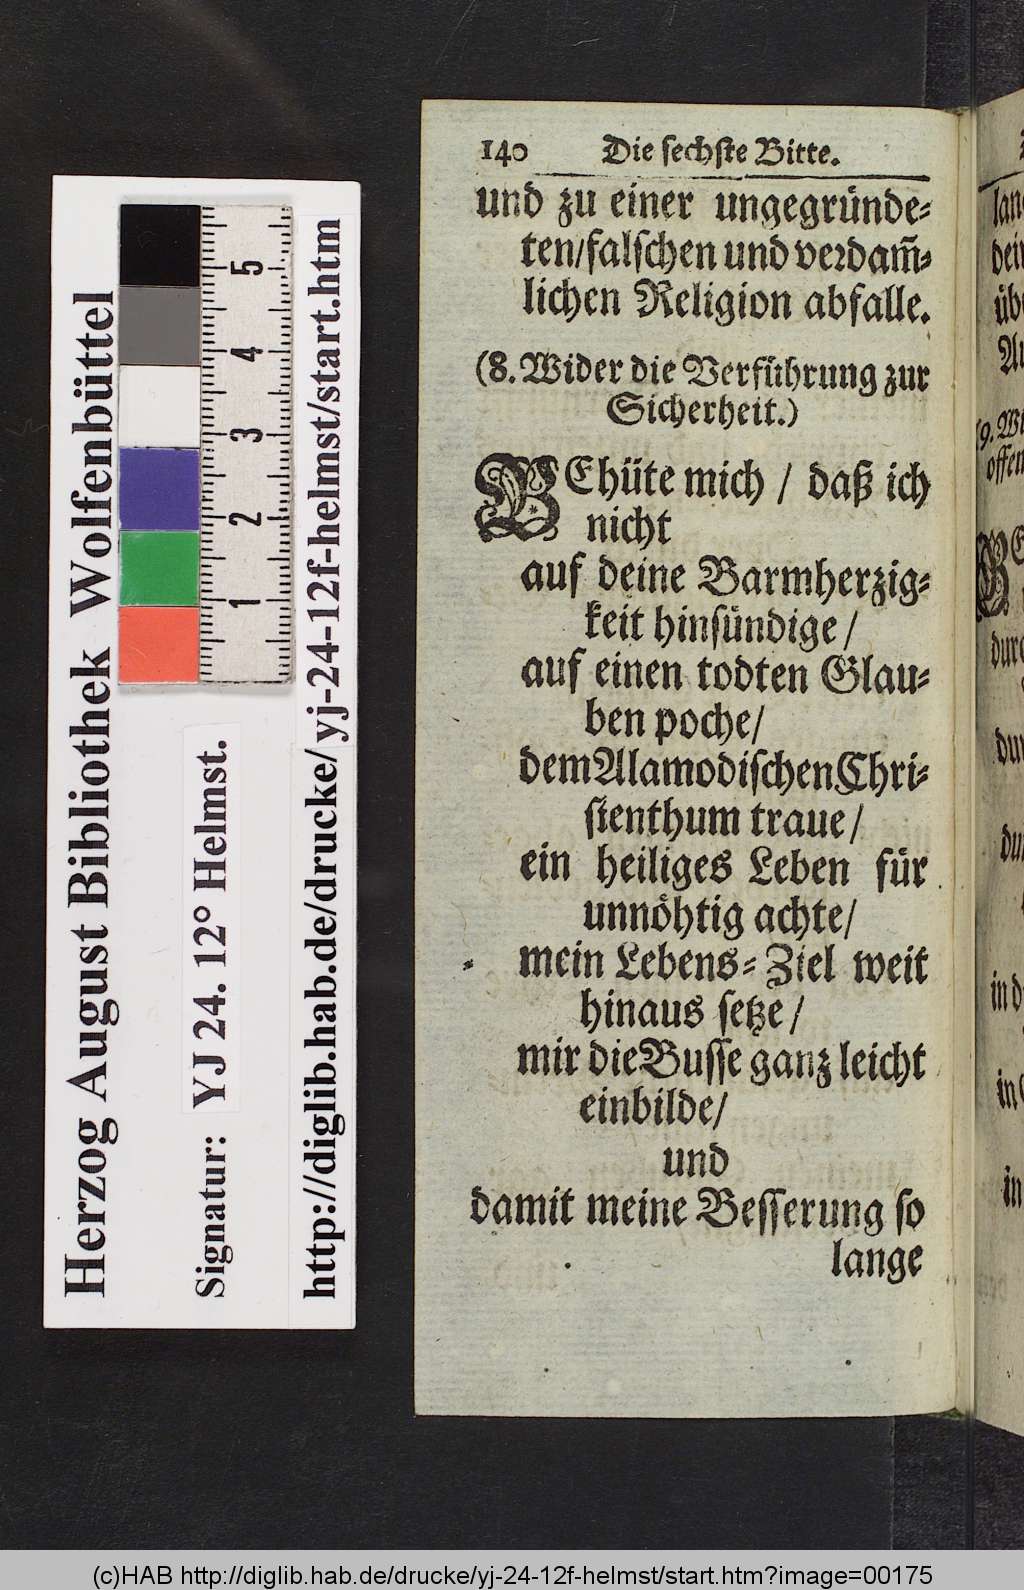 140 Die sechste Bitte.
und zu einer ungegründe⸗
ten/falschen und verdam̃⸗
lichen Religion abfalle.
(8. Wider die Verführung zur
Sicherheit.)
BEhüte mich / daß ich
nicht
auf deine Barmherzig⸗
keit hinsündige /
auf einen todten Glau⸗
ben poche/
dem Alamodischen Chri⸗
stenthum traue /
ein heiliges Leben für
unnöhtig achte/
mein Lebens⸗Ziel weit
hinaus setze /
mir die Busse ganz leicht
einbilde/
und
damit meine Besserung so
lange
Herzog August Bibliothek Wolfenbüttel
Signatur: YJ 24. 12° Helmst.
http://diglib.hab.de/drucke/yj-24-12f-helmst/start.htm
1 2 3 4 5
(c)HAB http://diglib.hab.de/drucke/yj-24-12f-helmst/start.htm?image=00175